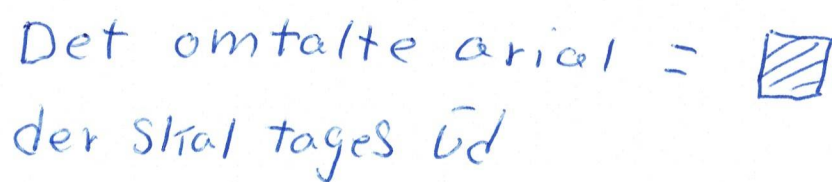 Det omtalte arial =
der skal tages ud